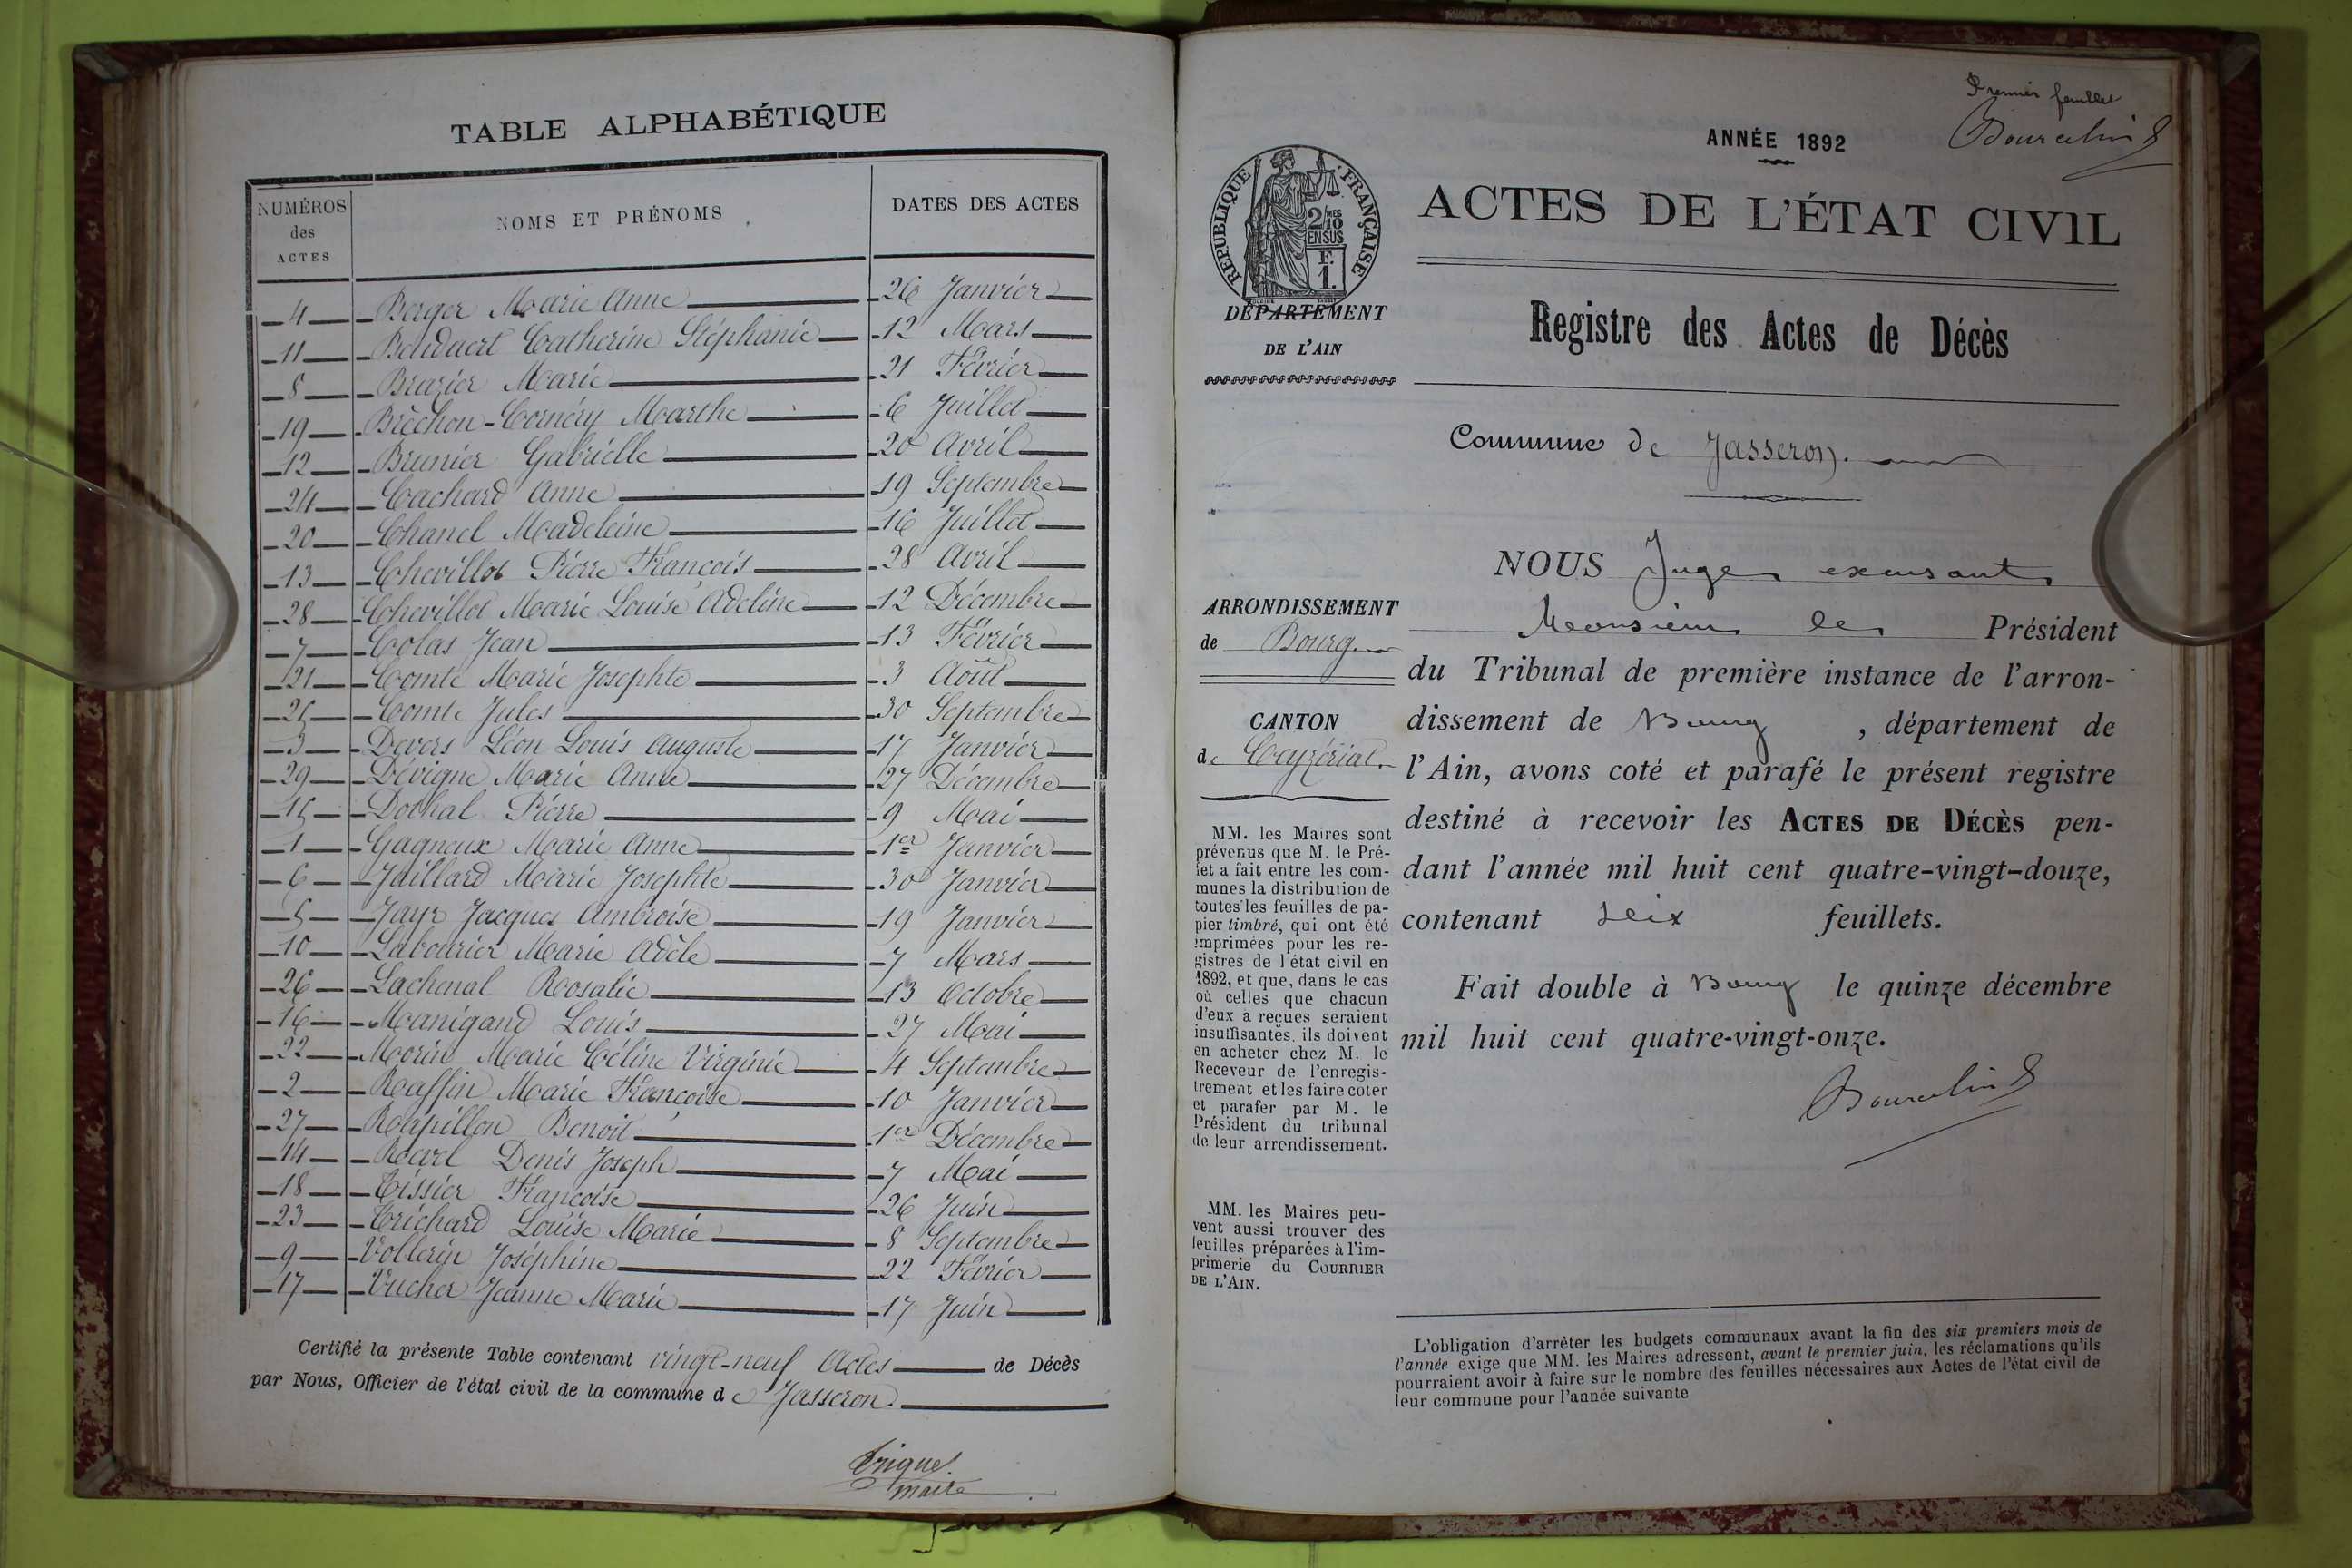 TABLE ALPHABÉTIQUE
NUMÉROS des ACTES NOMS ET PRÉNOMS DATES DES ACTES
4 Berger Marie Anne 26 Janvier
11 Catherine Stéphanie 12 Mars
8 Brazier Marie 21 Février
19 Brèchon-Cornéry Marthe 6 Juillet
12 Brunier Gabrielle 20 Avril
24 Cachard Anne 19 Septembre
20 Chanel Madeleine 16 Juillet
13 Chevillot Pierre François 28 Avril
28 Chevillot Marie Louise Adeline 12 Décembre
7 Colas Jean 13 Février
21 Comte Marie Josephte 3 Août
25 Comte Jules 30 Septembre
3 Devers Léon Louis Auguste 17 Janvier
29 Dévigne Marie Anne 27 Décembre
15 Dothal Pierre 9 Mai
1 Gagneux Marie Anne 1er Janvier
6 Jaillard Marie Josephte 30 Janvier
5 Jayr Jacques Ambroise 19 Janvier
10 Labourier Marie Adèle 7 Mars
26 Lachenal Rosalie 13 Octobre
16 Manigand Louis 27 Mai
22 Morin Marie Céline Virginie 4 Septembre
2 Raffin Marie Françoise 10 Janvier
27 Rapillon Benoit 1er Décembre
14 Revel Denis Joseph 7 Mai
18 Tissier Françoise 26 Juin
23 Trichard Louise Marie 8 Septembre
9 Vollerin Joséphine 22 Février
17 Vucher Jeanne Marie 17 Juin
Certifié la présente Table contenant vingt-neuf Actes de Décès
par Nous, Officier de l'état civil de la commune de Jasseron
maire
Premier feuillet
ANNÉE 1892
RÉPUBLIQUE FRANÇAISE
2/10 MES
EN SUS
F.
1.
ACTES DE L'ÉTAT CIVIL
DÉPARTEMENT
DE L'AIN
Registre des Actes de Décès
Commune de Jasseron.
ARRONDISSEMENT
de Bourg.
CANTON
de Ceyzériat.
MM. les Maires sont
prévenus que M. le Pré-
fet a fait entre les com-
munes la distribution de
toutes les feuilles de pa-
pier timbré, qui ont été
imprimées pour les re-
gistres de l'état civil en
1892, et que, dans le cas
où celles que chacun
d'eux a reçues seraient
insuffisantes, ils doivent
en acheter chez M. le
Receveur de l'enregis-
trement et les faire coter
et parafer par M. le
Président du tribunal
de leur arrondissement.
MM. les Maires peu-
vent aussi trouver des
feuilles préparées à l'im-
primerie du COURRIER
DE L'AIN.
NOUS Juge excusant
Monsieur le Président
du Tribunal de première instance de l'arron-
dissement de Bourg , département de
l'Ain, avons coté et parafé le présent registre
destiné à recevoir les ACTES DE DÉCÈS pen-
dant l'année mil huit cent quatre-vingt-douze,
contenant seix feuillets.
Fait double à Bourg le quinze décembre
mil huit cent quatre-vingt-onze.
L'obligation d'arrêter les budgets communaux avant la fin des six premiers mois de
l'année exige que MM. les Maires adressent, avant le premier juin, les réclamations qu'ils
pourraient avoir à faire sur le nombre des feuilles nécessaires aux Actes de l'état civil de
leur commune pour l'année suivante